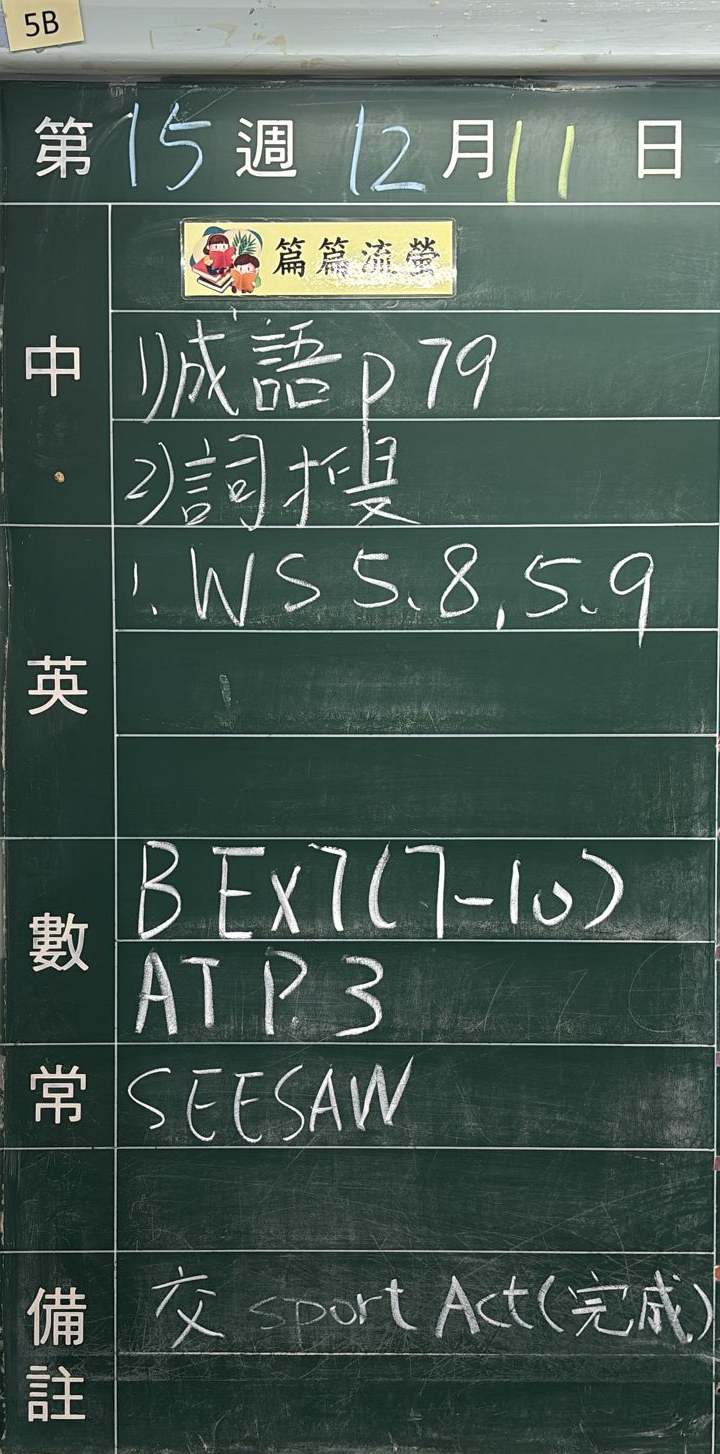 5B
第 15 週 12 月 11 日
篇篇流螢
中
1)成語 p 79
2)詞搜
英
1. WS 5.8, 5.9
數
B Ex7(7-10)
AT P.3
常
SEESAW
備註
交 sport Act(完成)